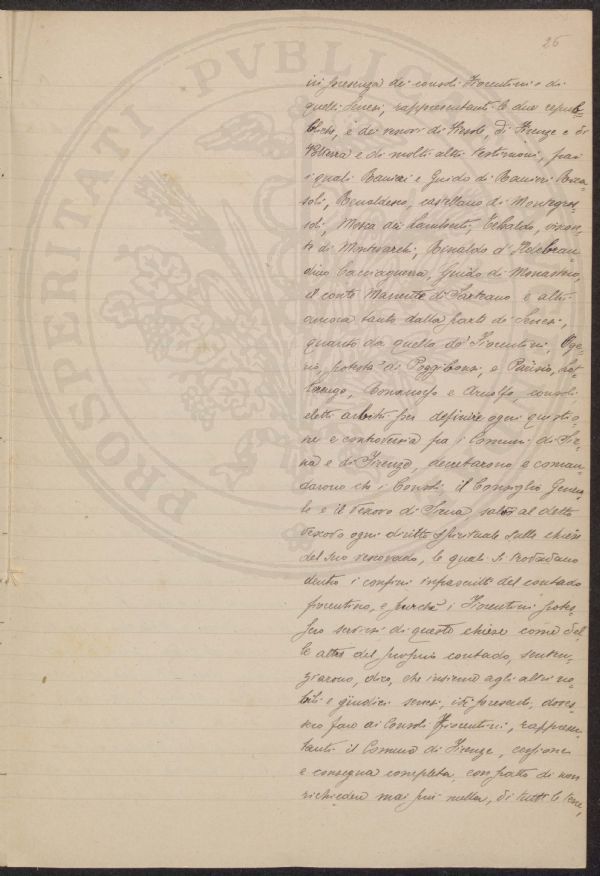 26
PROSPERITATI PVBLIC
in presenza dei consoli Fiorentini e di
quelli Senesi, rappresentanti le due repub-
bliche, e dei vescovi di Fiesole, di Firenze e di
Volterra e di molti altri testimoni, fra
i quali Ranieri e Guido di Ranieri Rica-
soli, Renaldesco, castellano di Montegros-
soli, Mosca dei Lamberti, Tebaldo, viscon-
te di Montevarchi, Rinaldo d'Ildebran-
dino Cacciaguerra, Guido di Monastero,
il conte Manente di Sarteano e altri
ancora tanto dalla parte di Senesi,
quanto da quella de' Fiorentini, Oge-
rio, potestà di Poggibonsi, e
Bononuofo e Arnolfo, consoli
eletti arbitri per definire ogni questio-
ne e controversia fra i Comuni di Sie-
na e di Firenze, decretarono e coman-
darono che i Consoli, il Consiglio Genera-
le e il Vescovo di Siena, salvo al detto
Vescovo ogni diritto spirituale sulle chiese
del suo vescovado, le quali si trovavano
dentro i confini infrascritti del contado
fiorentino, e purchè i Fiorentini potes-
sero servirsi di queste chiese come del-
le altre del proprio contado, senten-
ziarono, dico, che insieme agli altri no-
bili e giudici senesi, ivi presenti, doves-
sero fare ai Consoli Fiorentini, rappresen-
tanti il Comune di Firenze, cessione
e consegna completa, con patto di non
richiedere mai più nulla, di tutte le terre,